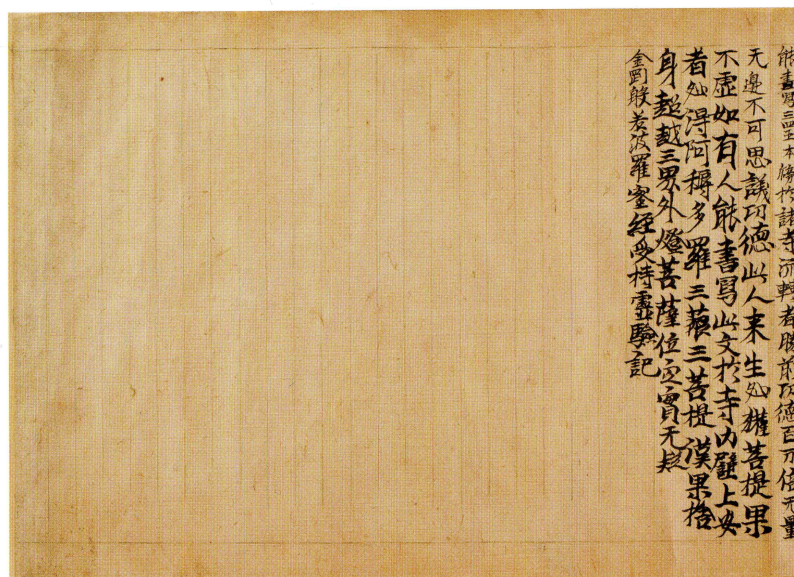 能書寫三四五本牓於諸寺流轉者勝前功德百万倍无量
无邊不可思議功德此人来生必獲菩提果
不虛如有人能書寫此文於寺内壁上安
者必得阿耨多羅三藐三菩提漢果捨
身超越三界外燈菩薩位定實无疑
金剛般若波羅蜜經受持靈驗記